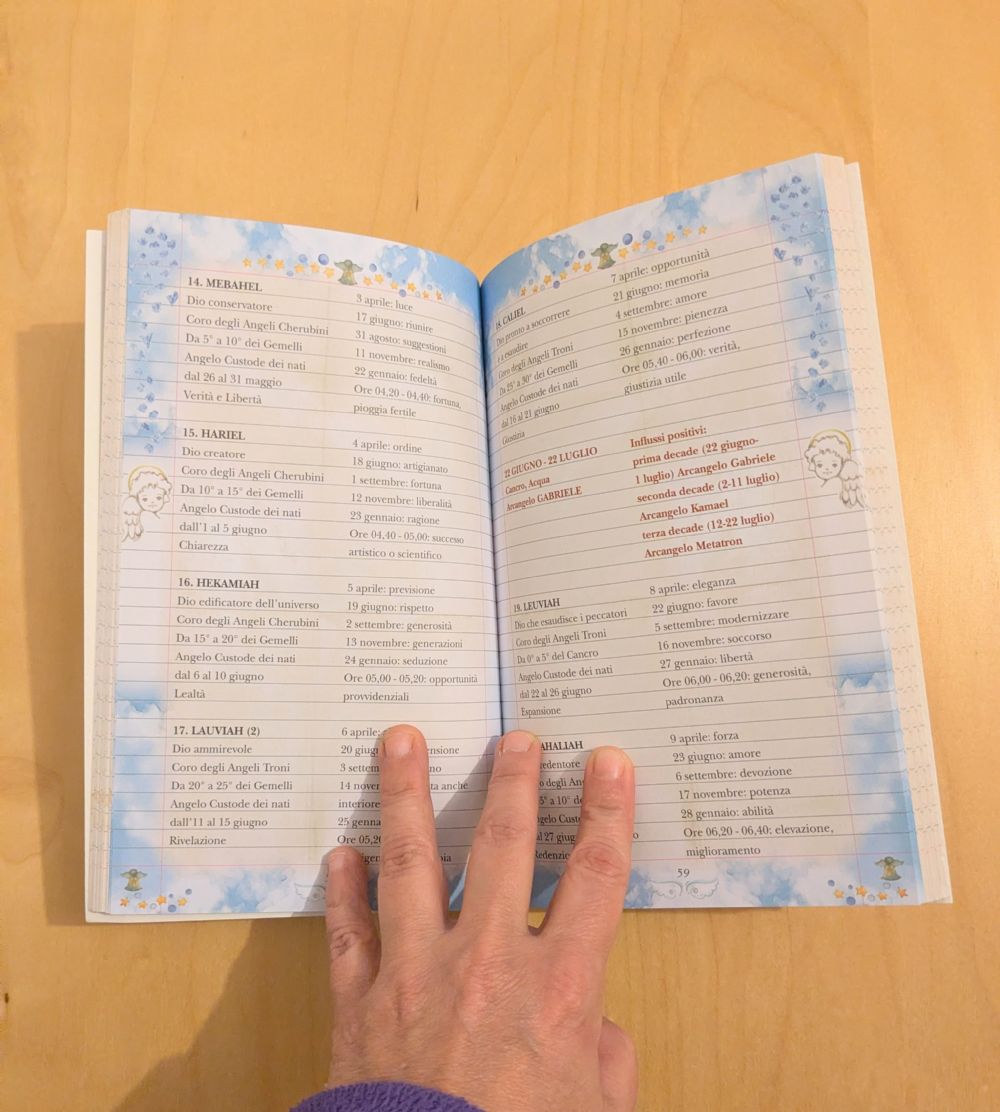 14. MEBAHEL
Dio conservatore
Coro degli Angeli Cherubini
Da 5° a 10° dei Gemelli
Angelo Custode dei nati
dal 26 al 31 maggio
Verità e Libertà
3 aprile: luce
17 giugno: riunire
31 agosto: suggestioni
11 novembre: realismo
22 gennaio: fedeltà
Ore 04,20 - 04,40: fortuna,
pioggia fertile
15. HARIEL
Dio creatore
Coro degli Angeli Cherubini
Da 10° a 15° dei Gemelli
Angelo Custode dei nati
dall'1 al 5 giugno
Chiarezza
4 aprile: ordine
18 giugno: artigianato
1 settembre: fortuna
12 novembre: liberalità
23 gennaio: ragione
Ore 04,40 - 05,00: successo
artistico o scientifico
16. HEKAMIAH
Dio edificatore dell'universo
Coro degli Angeli Cherubini
Da 15° a 20° dei Gemelli
Angelo Custode dei nati
dal 6 al 10 giugno
Lealtà
5 aprile: previsione
19 giugno: rispetto
2 settembre: generosità
13 novembre: generazioni
24 gennaio: seduzione
Ore 05,00 - 05,20: opportunità
provvidenziali
17. LAUVIAH (2)
Dio ammirevole
Coro degli Angeli Troni
Da 20° a 25° dei Gemelli
Angelo Custode dei nati
dall'11 al 15 giugno
Rivelazione
6 aprile:
20
3
14 anche
interiore
25
Ore 05,20
18. CALIEL
Dio pronto a soccorrere
e a esaudire
Coro degli Angeli Troni
Da 25° a 30° dei Gemelli
Angelo Custode dei nati
dal 16 al 21 giugno
Giustizia
7 aprile: opportunità
21 giugno: memoria
4 settembre: amore
15 novembre: pienezza
26 gennaio: perfezione
Ore 05,40 - 06,00: verità,
giustizia utile
22 GIUGNO - 22 LUGLIO
Cancro, Acqua
Arcangelo GABRIELE
Influssi positivi:
prima decade (22 giugno-
1 luglio) Arcangelo Gabriele
seconda decade (2-11 luglio)
Arcangelo Kamael
terza decade (12-22 luglio)
Arcangelo Metatron
19. LEUVIAH
Dio che esaudisce i peccatori
Coro degli Angeli Troni
Da 0° a 5° del Cancro
Angelo Custode dei nati
dal 22 al 26 giugno
Espansione
8 aprile: eleganza
22 giugno: favore
5 settembre: modernizzare
16 novembre: soccorso
27 gennaio: libertà
Ore 06,00 - 06,20: generosità,
padronanza
degli
a 10°
al 27
9 aprile: forza
23 giugno: amore
6 settembre: devozione
17 novembre: potenza
28 gennaio: abilità
Ore 06,20 - 06,40: elevazione,
miglioramento
59